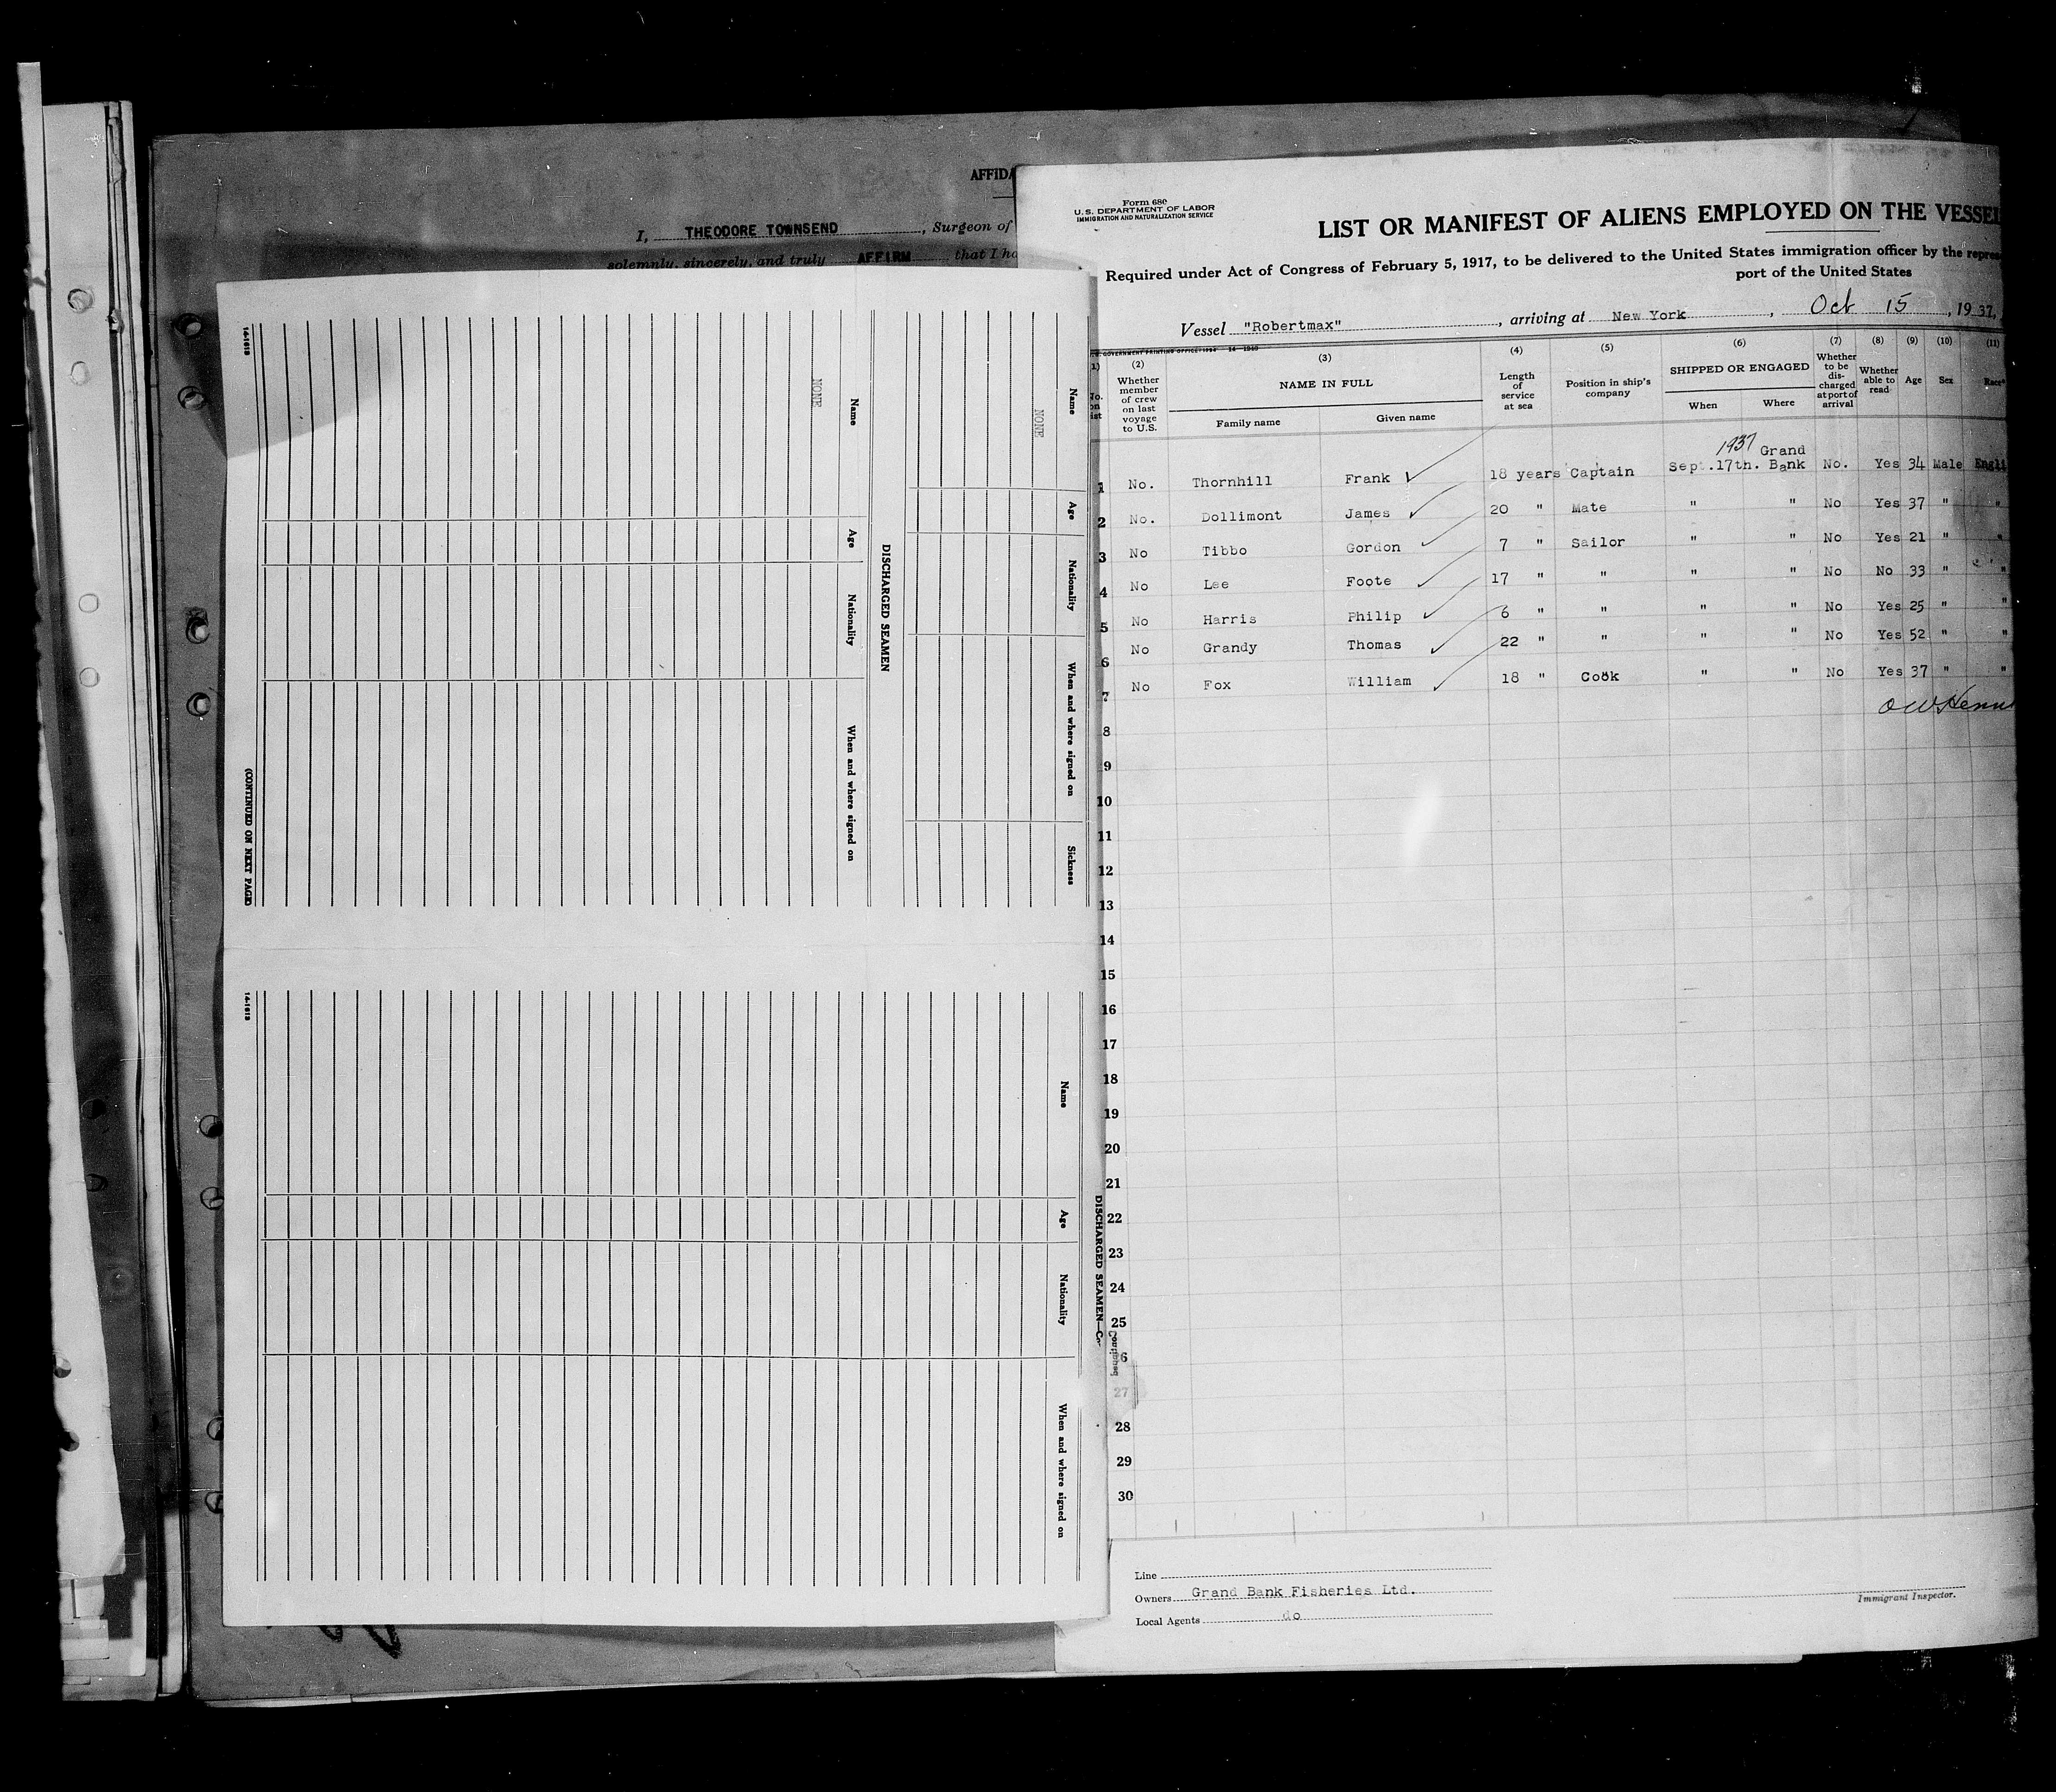 AFFIDA
I, THEODORE TOWNSEND, Surgeon of
solemnly, sincerely, and truly AFFIRM that I ha
Name Age Nationality When and where signed on Sickness
NONE
DISCHARGED SEAMEN
Name Age Nationality When and where signed on
NONE
14-1613
(CONTINUED ON NEXT PAGE)
DISCHARGED SEAMEN—Continued
Name Age Nationality When and where signed on
14-1613
Form 680
U.S. DEPARTMENT OF LABOR
IMMIGRATION AND NATURALIZATION SERVICE
LIST OR MANIFEST OF ALIENS EMPLOYED ON THE VESSEL
Required under Act of Congress of February 5, 1917, to be delivered to the United States immigration officer by the repres
port of the United States
Vessel "Robertmax", arriving at New York, Oct 15, 1937,
U.S. GOVERNMENT PRINTING OFFICE
(1) (2) (3) (4) (5) (6) (7) (8) (9) (10) (11)
No. on list
Whether member of crew on last voyage to U.S.
NAME IN FULL
Family name Given name
Length of service at sea
Position in ship's company
SHIPPED OR ENGAGED
When Where
Whether to be discharged at port of arrival
Whether able to read
Age
Sex
Race*
1937 Grand
1 No. Thornhill Frank 18 years Captain Sept.17th. Bank No. Yes 34 Male Engli
2 No. Dollimont James 20 " Mate " " No Yes 37 " "
3 No Tibbo Gordon 7 " Sailor " " No Yes 21 " "
4 No Lee Foote 17 " " " " No No 33 " "
5 No Harris Philip 6 " " " " No Yes 25 " "
6 No Grandy Thomas 22 " " " " No Yes 52 " "
7 No Fox William 18 " Cook " " No Yes 37 " "
8
9
10
11
12
13
14
15
16
17
18
19
20
21
22
23
24
25
26
27
28
29
30
Line
Owners Grand Bank Fisheries Ltd.
Local Agents do
Immigrant Inspector.